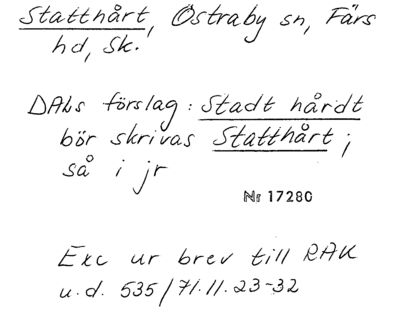 Statthårt, Östraby sn, Färs
hd, Sk.
DALs förslag: Stadt hårdt
bör skrivas Statthårt;
så i jr
Nr 17280
Exc ur brev till RAK
u.d. 535/71.11.23-32